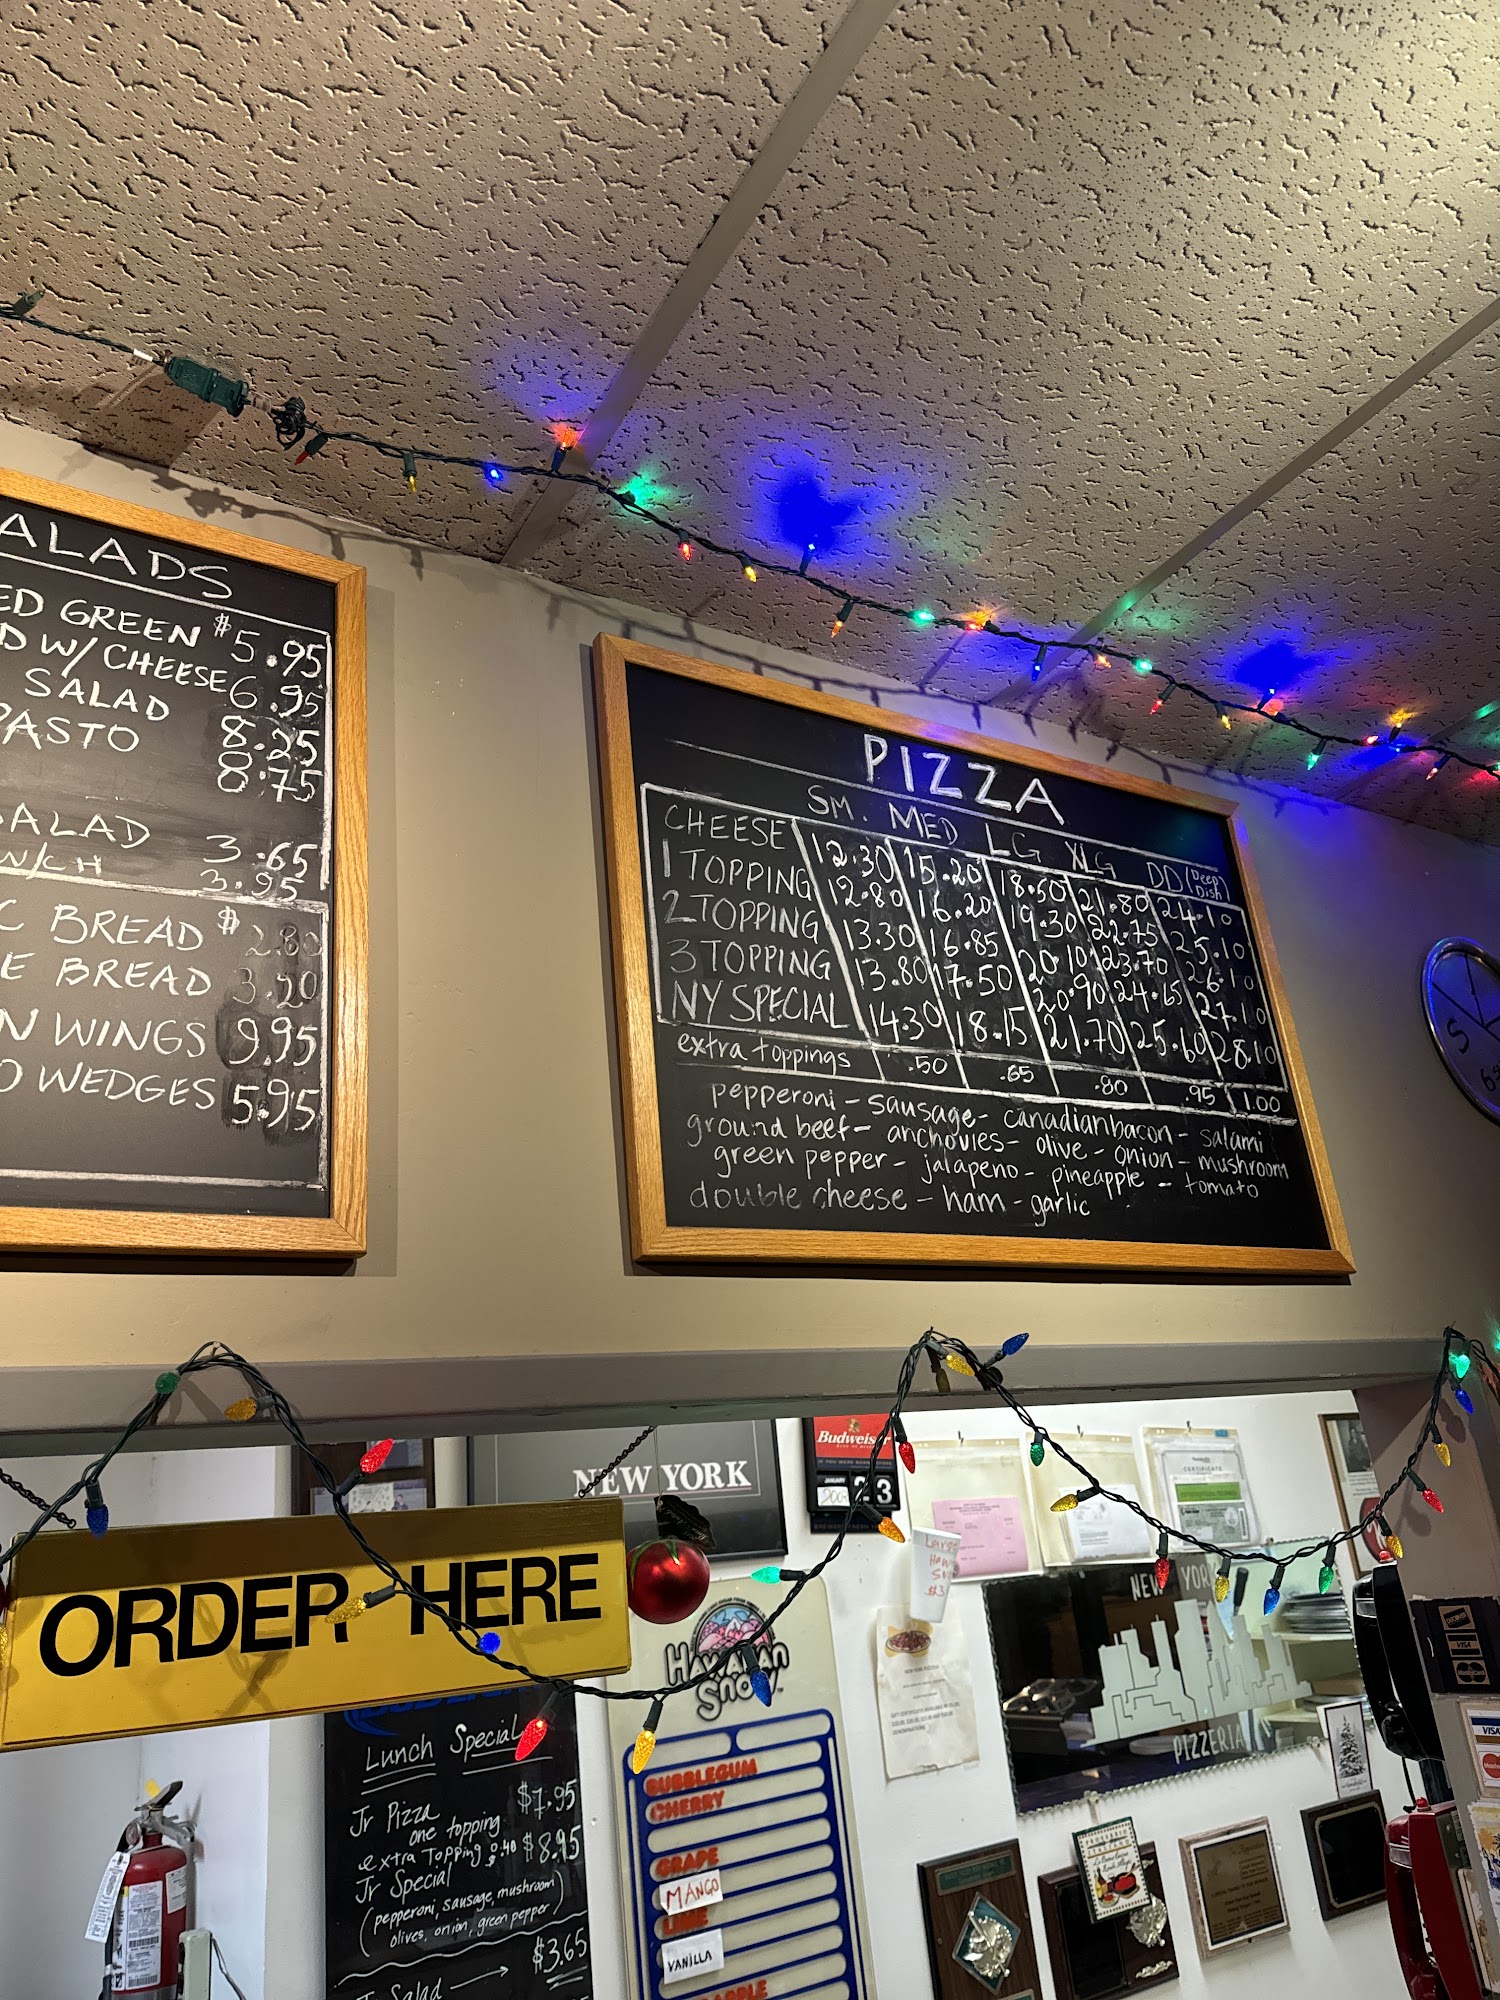 ALADS
ED GREEN $5.95
D W/ CHEESE 6.95
SALAD 8.25
PASTO 8.75
SALAD 3.65
W/CH 3.95
C BREAD $2.80
E BREAD 3.20
N WINGS 9.95
O WEDGES 5.95
PIZZA
SM. MED LG XLG DD (Deep Dish)
CHEESE 12.30 15.20 18.50 21.80 24.10
1 TOPPING 12.80 16.20 19.30 22.75 25.10
2 TOPPING 13.30 16.85 20.10 23.70 26.10
3 TOPPING 13.80 17.50 20.90 24.65 27.10
NY SPECIAL 14.30 18.15 21.70 25.60 28.10
extra toppings .50 .65 .80 .95 1.00
pepperoni - sausage - canadian bacon - salami
ground beef - anchovies - olive - onion - mushroom
green pepper - jalapeno - pineapple - tomato
double cheese - ham - garlic
NEW YORK
Budweiser
JANUARY
23
CERTIFICATE
ORDER HERE
Large
Haw
Sno
$3
NEW YORK
PIZZERIA
Hawaiian
Snow
BUBBLEGUM
CHERRY
GRAPE
MANGO
LIME
VANILLA
Lunch Special
Jr Pizza $7.95
one topping
extra Topping 0.40 $8.95
Jr Special
(pepperoni, sausage, mushroom)
olives, onion, green pepper
$3.65
Jr Salad
NEW YORK PIZZERIA
DISCOVER
VISA
MasterCard
VISA
5
6